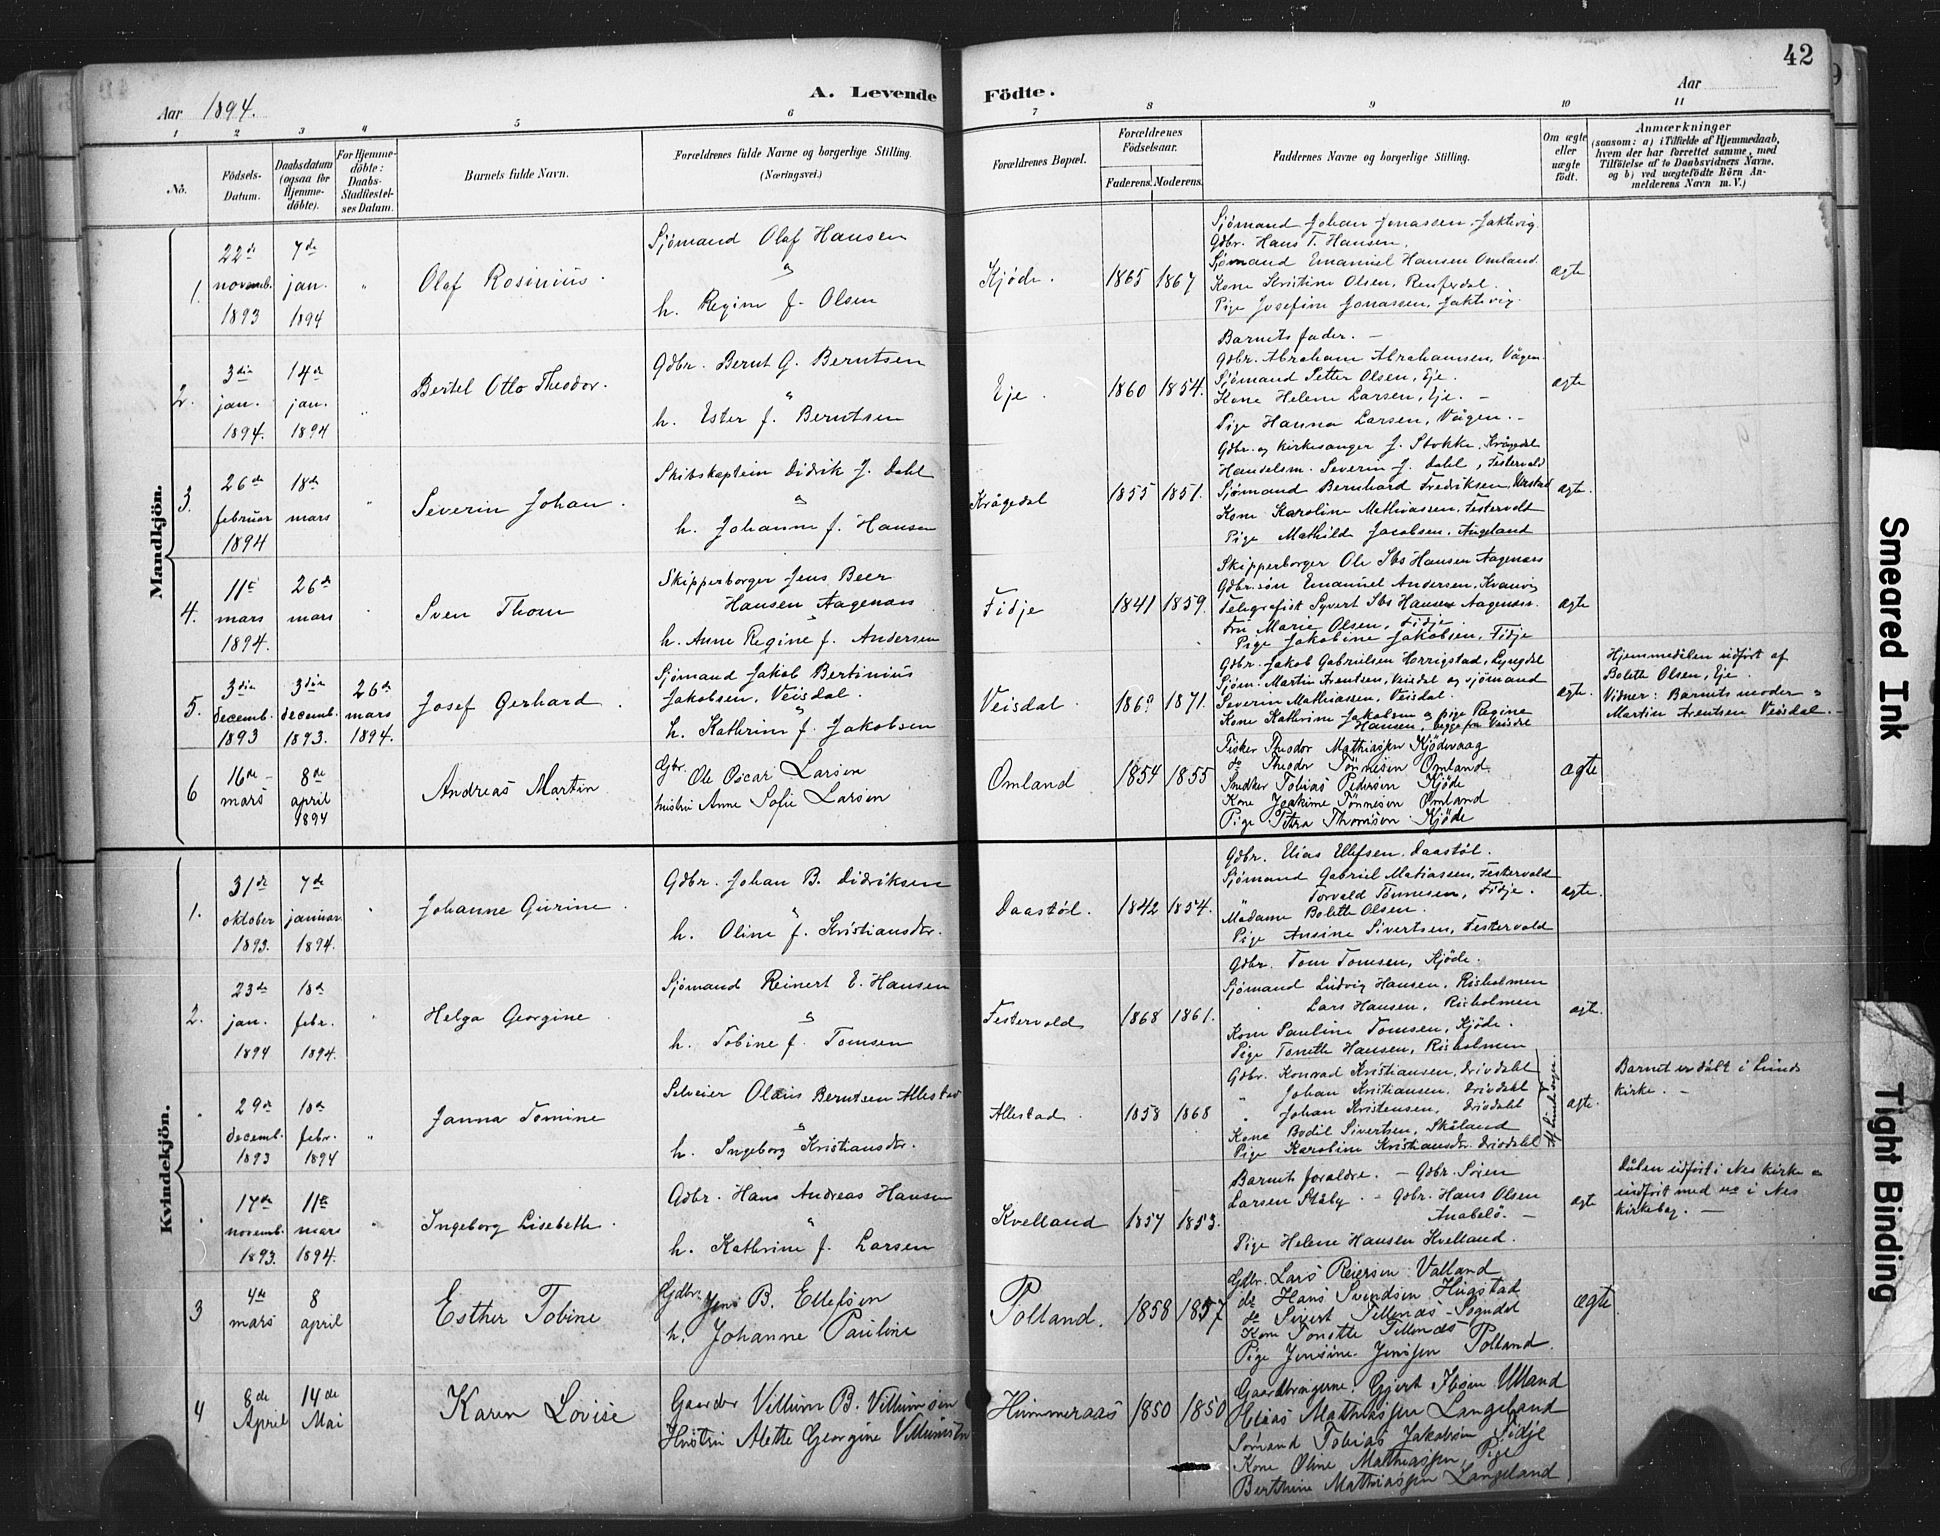 42
Aar 1894.
A. Levende Födte.
Aar
1 2 3 4 5 6 7 8 9 10 11
No.
Födsels-Datum.
Daabsdatum (ogsaa for Hjemme-döbte).
For Hjemme-döbte: Daabs-Stadfæstel-ses Datum.
Barnets fulde Navn.
Forældrenes fulde Navne og borgerlige Stilling. (Næringsvei.)
Forældrenes Bopæl.
Forældrenes Födselsaar.
Faderens. Moderens.
Faddernes Navne og borgerlige Stilling.
Om ægte eller uægte födt.
Anmærkninger
(saasom: a) i Tilfælde af Hjemmedaab,
hvem der har forrettet samme, med
Tilföielse af to Daabsvidners Navne,
og b) ved uægtefödte Börn An-
melderens Navn m. V.)
Mandkjön.
1. 22de novemb. 1893
7de jan. 1894
"
Olaf Rosinius.
Sjömand Olaf Hansen
&
h. Regine f. Olsen
Kjöde.
1865 1867
Sjömand Johan Jonassen, Jaktevig
Gdbr. Hans T. Hansen.
Sjömand Emanuel Hansen Omland
Kone Kristine Olsen, Rensferdal.
Pige Josefine Jonassen, Jaktevig.
ægte
2. 3die jan. 1894.
14de jan. 1894
"
Bertel Otto Theodor.
Gdbr. Bernt G. Berntsen
&
h. Ester f. Berntsen
Eje.
1860 1854.
Barnets fader. —
Gdbr. Abraham Abrahamsen, Vågen
Sjömand Petter Olsen, Eje.
Kone Helene Larsen, Eje. —
Pige Hanna Larsen, Vågen. —
ægte
3. 26de februar 1894
18de mars
"
Severin Johan.
Skibskaptein Didrik J. Dahl
&
h. Johanne f. Hansen
Krågedal
1855 1851.
Gdbr. og kirkesanger J. Stokke, Krågedal
Handelsm. Severin J. Dahl, Festervold
Sjömand Bernhard Fredriksen, Urstad
Kone Karoline Mathiassen, Festervold
Pige Mathilde Jacobsen, Angeland
ægte.
4. 11te mars 1894.
26de mars
"
Sven Thom
Skipperborger Jens Beer
Hansen Aagenæs
&
h. Anne Regine f. Andersen
Fidje
1841 1859.
Skipperborger Ole Ibs Hansen Aagenæs
Gdbr.sön Emanuel Andersen, Kvanvig
Telegrafist Syvert Ibs Hansen Aagenæs.
Fru Marie Olsen, Fidje.
Pige Jakobine Jakobsen, Fidje
ægte
5. 3die decemb. 1893
3die decemb. 1893.
26de mars 1894.
Josef Gerhard.
Sjömand Jakob Bertinius
Jakobsen, Veisdal.
&
h. Kathrine f. Jakobsen
Veisdal.
1869 1871.
Gdbr. Jakob Gabrielsen Herrigstad, Lyngdal
Sjöm. Martin Arentsen, Veisdal og sjömand
Severin Mathiassen, Veisdal.
Kone Kathrine Jakobsen og pige Regine
Hansen, begge fra Veisdal
ægte.
Hjemmedåben udfört af
Bolette Olsen, Eje.
Vidner: Barnets moder &
Martin Arentsen Veisdal.
6 16de mars
8de april 1894
Andreas Martin
Gbr. Ole Oscar Larsen
hustru Anne Sofie Larsen
Omland
1854 1855
Fisker Theodor Mathiassen Kjödevaag
do Theodor Tönnesen Omland
Snedker Tobias Pedersen Kjöde
Kone Joakime Tönnesen Omland
Pige Petra Thomsen Kjöde
ægte
Kvindekjön.
1. 31de oktober 1893.
7de januar 1894.
"
Johanne Gurine.
Gdbr. Johan B. Didriksen
&
h. Oline f. Kristiansdtr.
Daastöl.
1842 1854.
Gdbr. Elias Ellefsen, Daastöl.
Sjömand Gabriel Matiassen, Festervold
" Torvald Tönnesen, Fidje.
Madame Bolette Olsen.
Pige Ansine Sivertsen, Festervold
ægte.
2. 23de jan. 1894
18de febr. 1894.
"
Helga Georgine.
Sjömand Reinert E. Hansen
&
h. Tobine f. Tomsen
Festervold
1868 1861.
Gdbr. Tom Tomsen, Kjöde.
Sjömand Ludvig Hansen, Risholmen
" Lars Hansen, Risholmen
Kone Pauline Tomsen, Kjöde.
Pige Tonette Hansen, Risholmen
ægte.
29de decemb. 1893
18de febr. 1894
"
Janna Tomine
Selveier Olaus Berntsen Allestad
&
h. Ingeborg Kristiansdtr.
Allestad.
1858 1868
Gdbr. Konrad Kristiansen, Drivdahl
" Johan Kristiansen, Drivdahl
" Johan Kristensen, Drivdahl
Kone Bodil Sivertsen, Skåland
Pige Karoline Kristiansdtr. Drivdahl
ægte.
Barnet er döbt i Lunds
kirke. —
17de novemb. 1893.
11te mars 1894.
"
Ingeborg Lisebeth.
Gdbr. Hans Andreas Hansen
&
h. Kathrine f. Larsen
Kvelland
1857 1853.
Barnets forældre. — Gdbr. Sören
Larsen Ståby. — Gdbr. Hans Olsen
Anabelö. —
Pige Helene Hansen Kvelland.
ægte
Dåben udfört i Nes kirke &
indfört med no i Nes
kirkebog. —
3 4de mars
8 april
Esther Tobine
Gdbr. Jens B. Ellefsen
h. Johanne Pauline
Polland.
1858 1857
Gdbr. Lars Reiersen Valland
do Hans Svendsen Hugstad
do Sivert Tellenæs - Sogndal
Kone Tonette Tellenæs
Pige Jensine Jenssen Polland.
ægte
4 8de April
14de Mai
Karen Lovise
Gaardbr Villum B. Villumsen
Hustru Mette Georgine Villumsen
Hummeraas
1850 1850
Gaardbrugerne: Gjert Ibsen Ulland
Elias Mathiassen Langeland
Sömand Tobias Jakobsen Fidje
Kone Oline Mathiassen, Pige
Berthine Mathiassen Langeland
Smeared Ink
Tight Binding